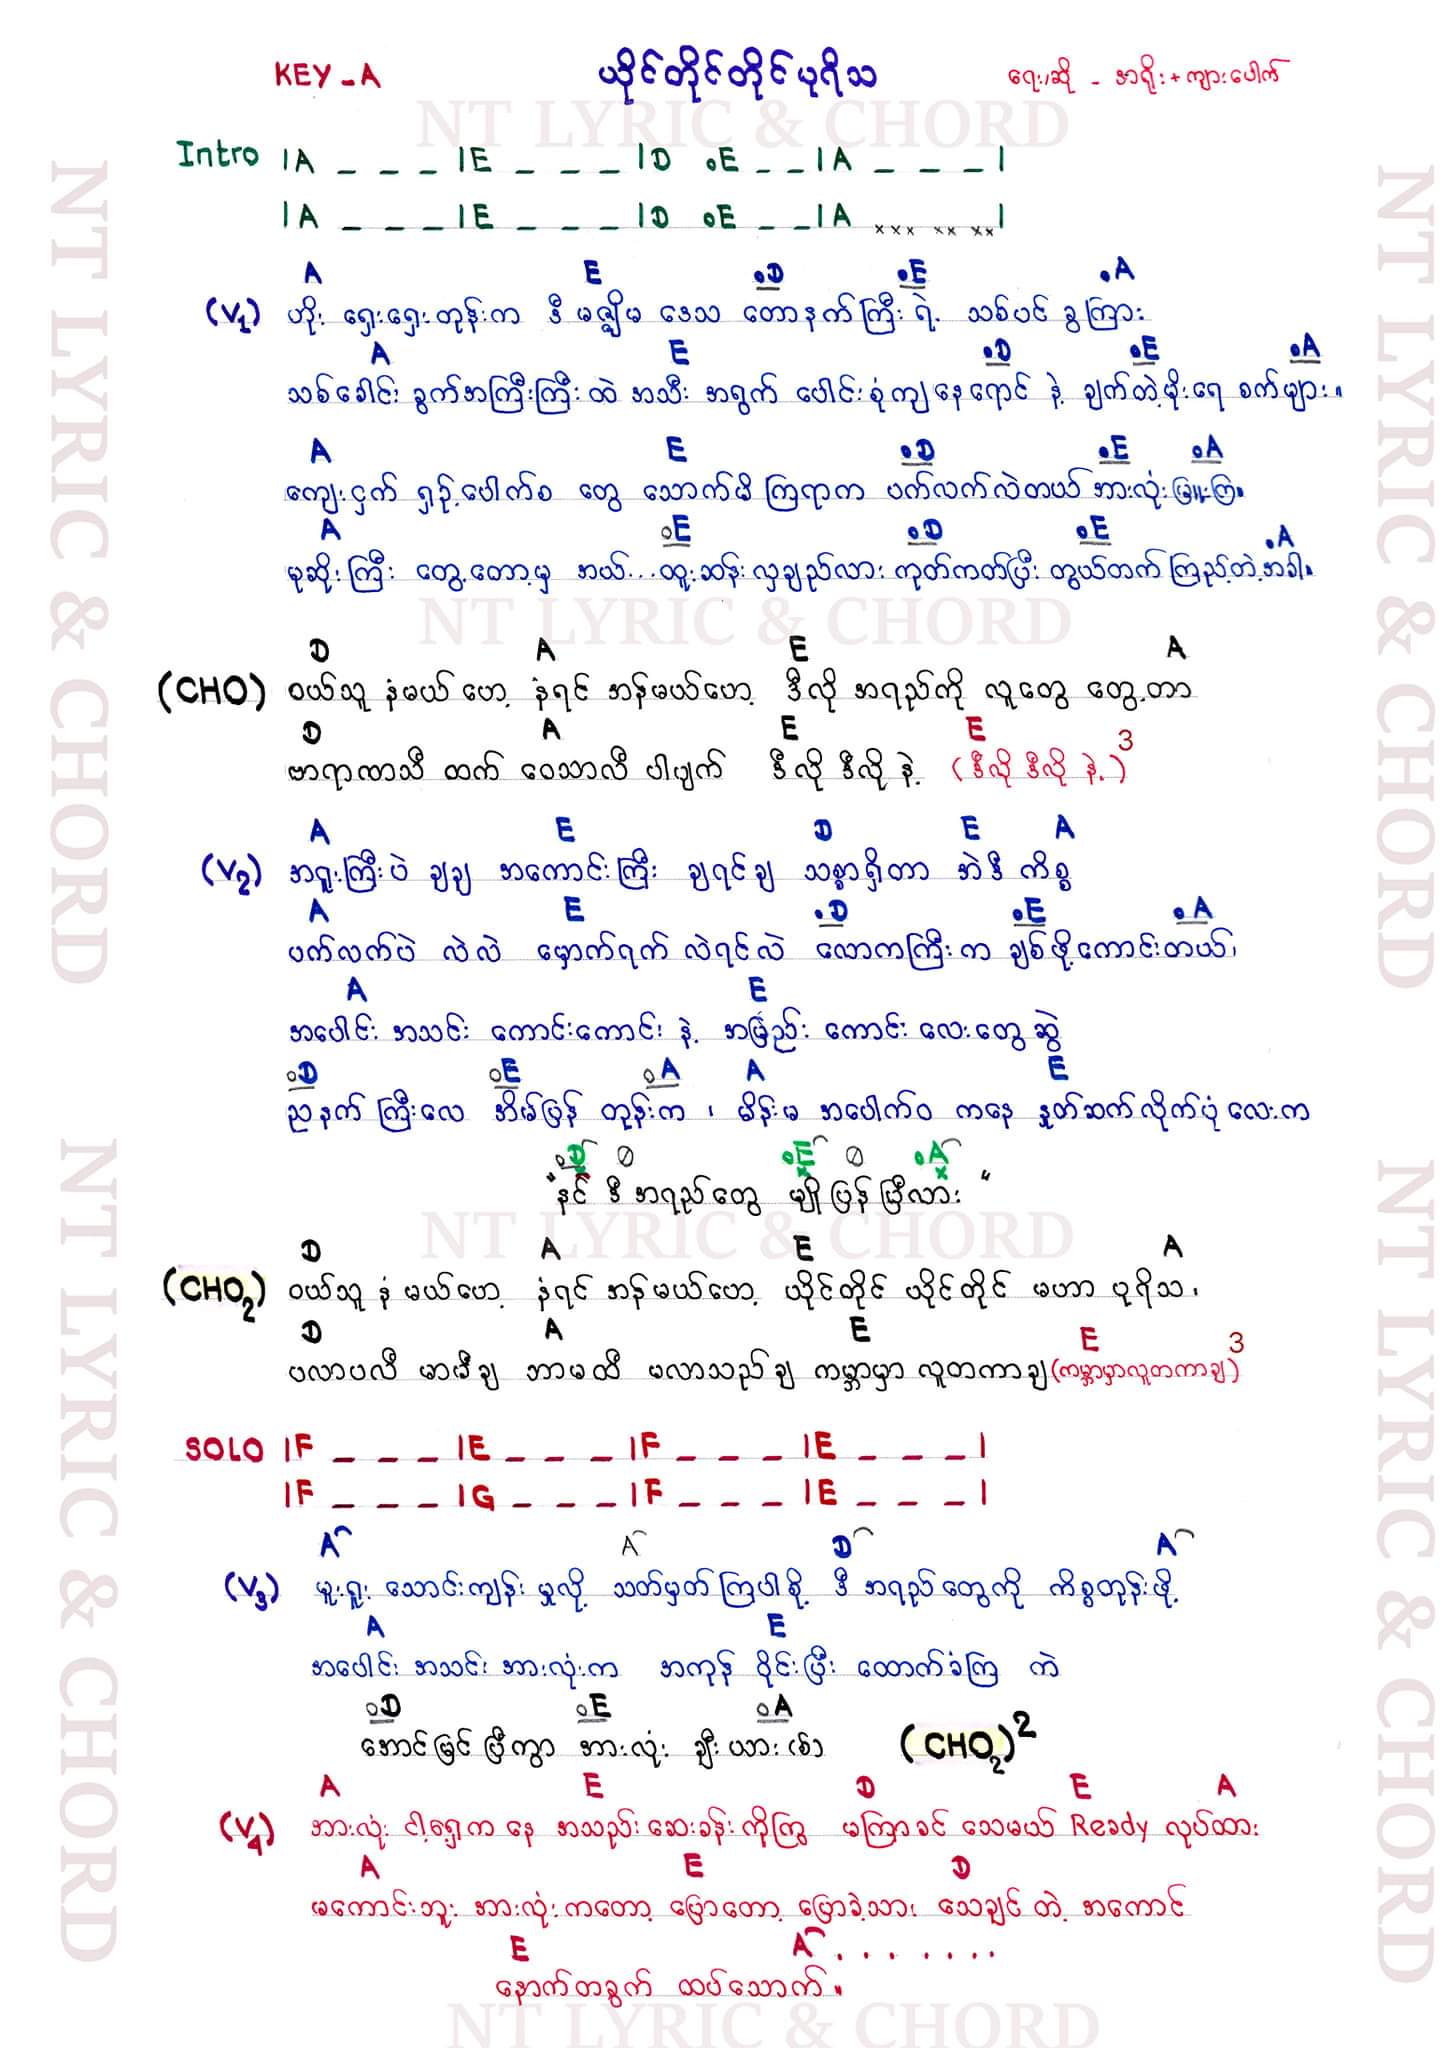 KEY - A ယိုင်တိုင်တိုင်ပုရိသ ရေး/ဆို - အရိုး + ကျားပေါက်
NT LYRIC & CHORD
Intro |A _ _ _ |E _ _ _ |D .E _ _ |A _ _ _ |
|A _ _ _ |E _ _ _ |D .E _ _ |A xxx xx xx |
A E .D .E .A
(V1) ဟိုး ရှေးရှေးတုန်းက ဒီ မဇ္ဈိမ ဒေသ တောနက်ကြီး ရဲ့ သစ်ပင် ခွကြား
A E .D .E .A
သစ်ခေါင်း ခွက်အကြီးကြီး ထဲ အသီး အရွက် ပေါင်းစုံကျနေရောင် နဲ့ ချက်တဲ့မိုးရေ စက်များ။
A E .D .E .A
ကျေးငှက် ရှဉ့်ပေါက်စ တွေ သောက်မိ ကြရာက ပက်လက်လဲတယ် အားလုံး မြူးကြ။
A .E .D .E .A
မုဆိုးကြီး တွေ့တော့မှ အယ်...ထူးဆန်း လှချည်လား ကုတ်ကတ်ပြီး တွယ်တက် ကြည့်တဲ့အခါ။
NT LYRIC & CHORD
D A E A
(CHO) ဝယ်သူ နံမယ် ဟေ့ နံရင် အန်မယ်ဟေ့ ဒီလို အရည်ကို လူတွေ တွေ့တာ
D A E E
ဗာရာဏသီ ထက် ဝေသာလီ ပါပျက် ဒီလို ဒီလို နဲ့ (ဒီလို ဒီလို နဲ့)3
A E D E A
(V2) အရူးကြီးပဲ ချချ အကောင်းကြီး ချရင်ချ သစ္စာရှိတာ အဲဒီ ကိစ္စ
A E .D .E .A
ပက်လက်ပဲ လဲလဲ မှောက်ရက် လဲရင်လဲ လောကကြီးက ချစ်ဖို့ကောင်းတယ်၊
A E
အပေါင်း အသင်း ကောင်းကောင်း နဲ့ အမြည်း ကောင်း လေးတွေဆွဲ
.D .E .A A E
ညနက် ကြီးလေ အိမ်ပြန် တုန်းက ၊ မိန်းမ အပေါက်ဝ ကနေ နှုတ်ဆက်လိုက်ပုံ လေးက
.D .E .A
"နင် ဒီ အရည်တွေ မျိုပြန် ပြီလား"
NT LYRIC & CHORD
D A E A
(CHO2) ဝယ်သူ နံ မယ်ဟေ့ နံရင် အန်မယ်ဟေ့ ယိုင်တိုင် ယိုင်တိုင် မဟာ ပုရိသ၊
D A E E
ပလာပလီ မာမီချ ဘာမထီ မလာသည်ချ ကမ္ဘာမှာ လူတကာချ (ကမ္ဘာမှာလူတကာချ)3
SOLO |F _ _ _ |E _ _ _ |F _ _ _ |E _ _ _ |
|F _ _ _ |G _ _ _ |F _ _ _ |E _ _ _ |
A A D A
(V3) မူးရူး သောင်းကျန်း မှုလို့ သတ်မှတ်ကြပါစို့ ဒီ အရည်တွေကို ကိစ္စတုန်းဖို့
A E
အပေါင်း အသင်း အားလုံးက အကုန် ဝိုင်းပြီး ထောက်ခံကြ ကဲ
.D .E .A
အောင်မြင်ပြီကွာ အားလုံး ချီးယား(စ်) (CHO2)2
A E D E A
(V4) အားလုံး ငါ့ရှေ့က နေ အသည်းဆေးခန်းကိုကြွ မကြာခင် သေမယ် Ready လုပ်ထား
A E D
မကောင်းဘူး အားလုံးကတော့ ပြောတော့ ပြောခဲ့သား သေချင် တဲ့ အကောင်
E A . . . . . . .
နောက်တခွက် ထပ်သောက်။
NT LYRIC & CHORD
NT LYRIC & CHORD
NT LYRIC & CHORD
NT LYRIC & CHORD
NT LYRIC & CHORD